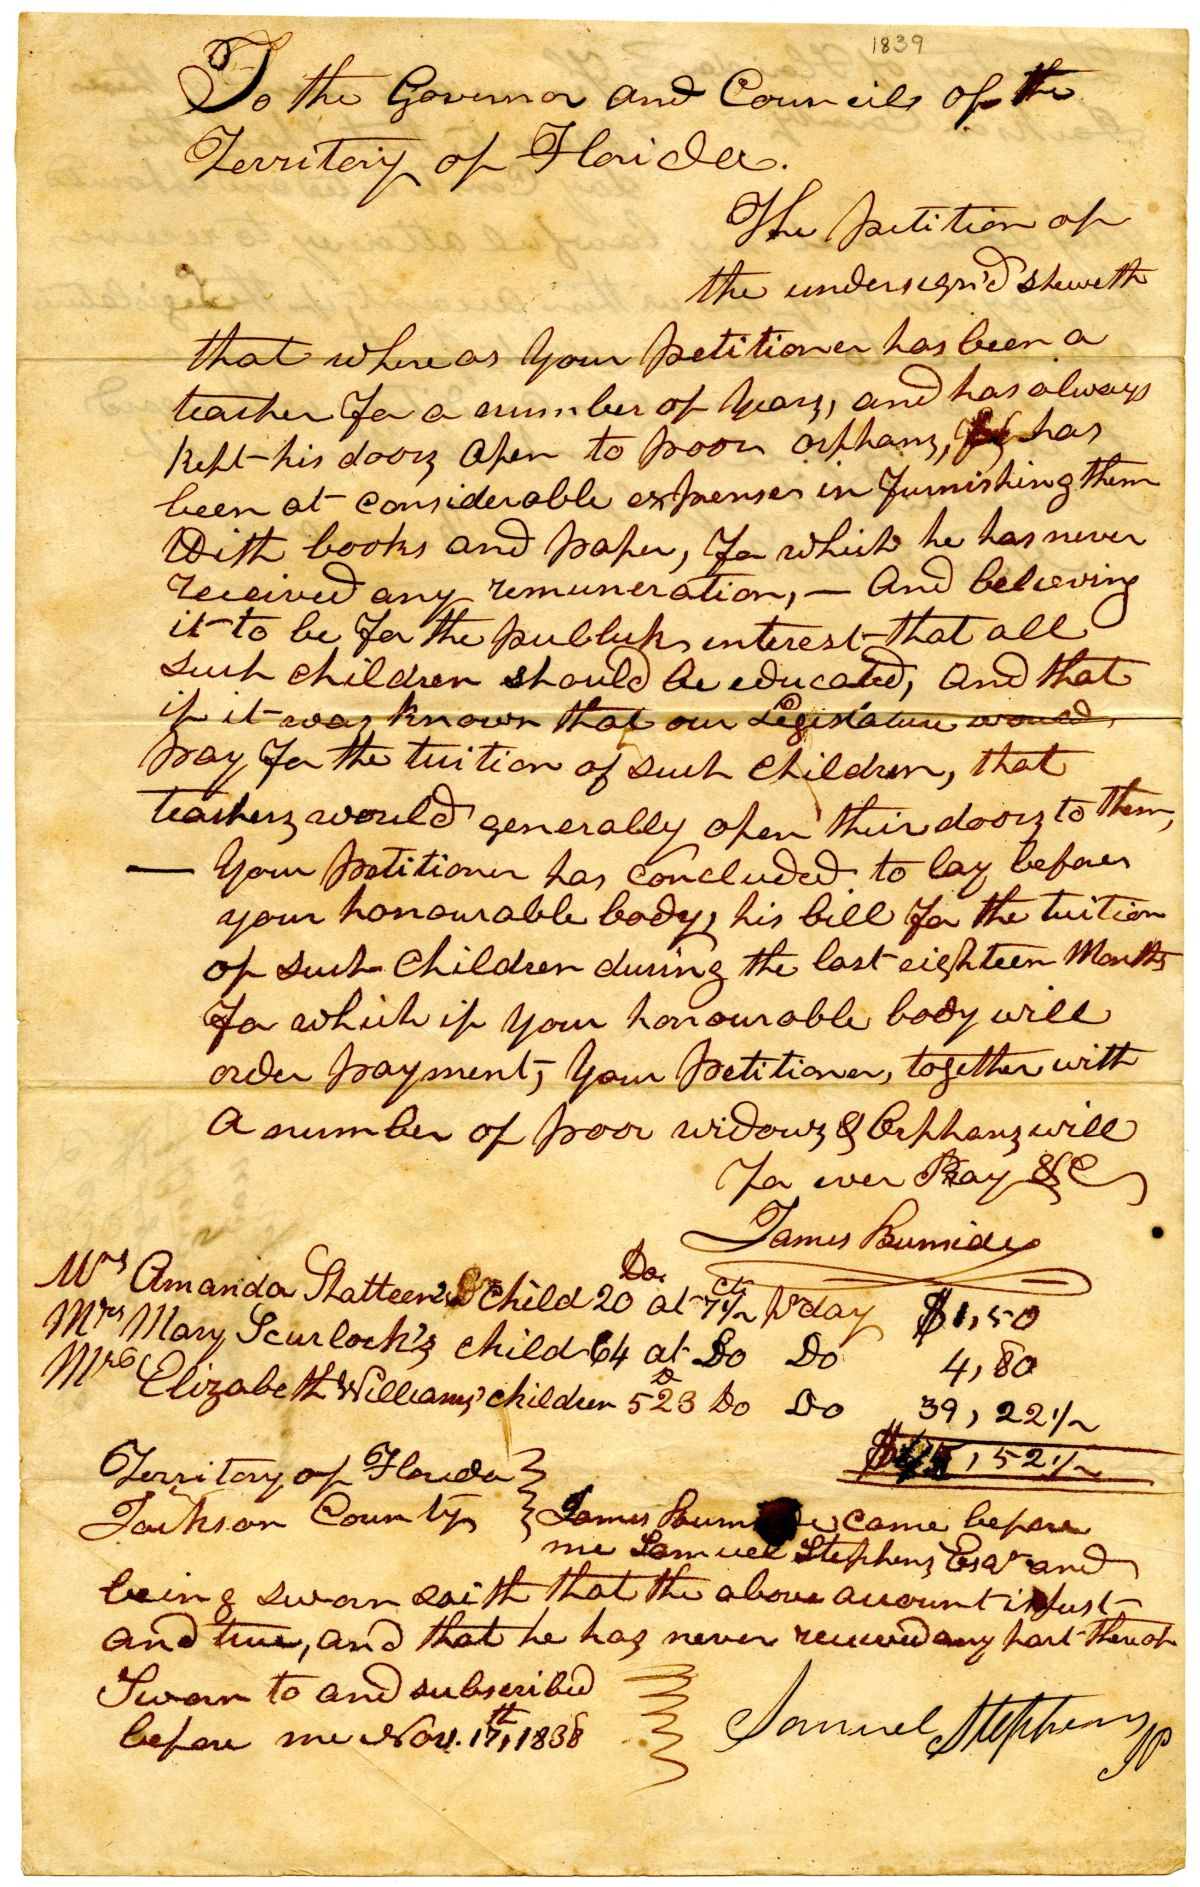 1839
To the Governor and Councils of the
Territory of Florida.
The petition of
the undersign'd sheweth
that where as your petitioner has been a
teacher for a number of years, and has always
kept his doors open to poor orphans, has
been at considerable expenses in furnishing them
With books and paper, for which he has never
received any remuneration, — And believing
it to be for the publick interest that all
such children should be educated, and that
if it was known that our Legislature would
pay for the tuition of such children, that
teachers would generally open their doors to them,
— Your petitioner has concluded to lay before
your honourable body, his bill for the tuition
of such children during the last eighteen Months
for which if your honourable body will
order payment, your petitioner, together with
a number of poor widows & Orphans will
for ever Pray &C
James Burnside
Mrs Amanda child 20 Da. at 7½ cts pr day $1,50
Mrs Mary Scurlock's child 64 at Do Do 4,80
Mrs Elizabeth Williams' children 523 D Do Do 39,22½
$45,52½
Territory of Florida
Jackson County } James came before
me Samuel Stephens Esqr and
being sworn saith that the above account is just
and true, and that he has never received any part thereof
Sworn to and subscribed
before me Nov. 17th, 1838
Samuel Stephens JP